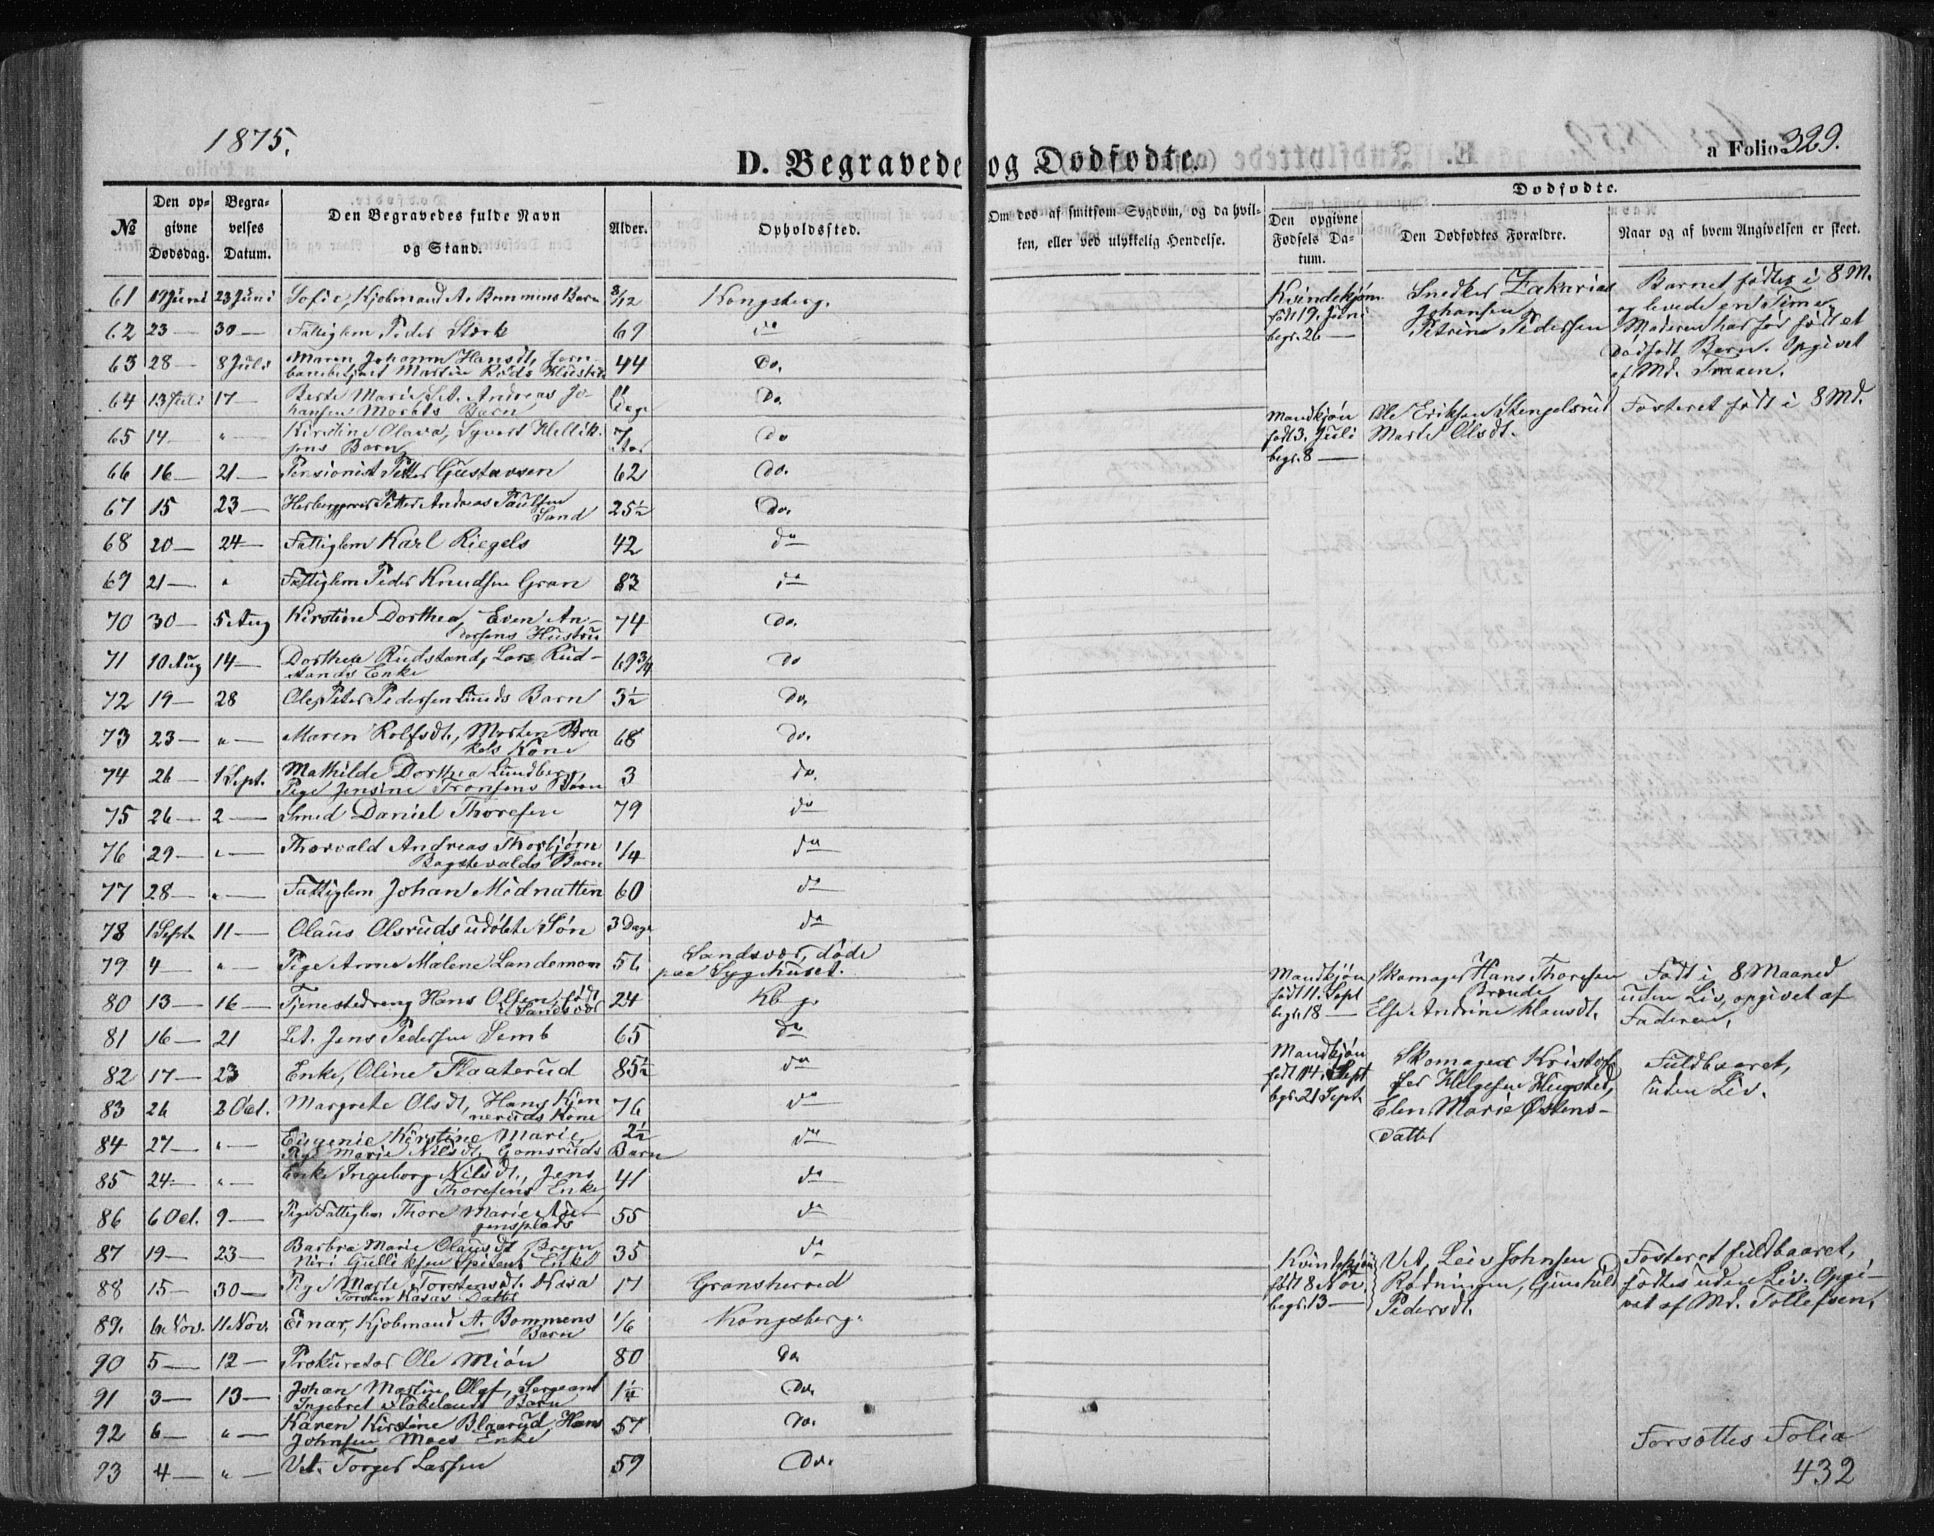 1875.
D. Begravede og Dødfødte.
a Folio 329.
№
Den opgivne Dødsdag.
Begravelses Datum.
Den Begravedes fulde Navn og Stand.
Alder.
Opholdssted.
Om død af smitsom Sygdom, og da hvilken, eller ved ulykkelig Hendelse.
Dødfødte.
Den opgivne Fødsels Datum.
Den Dødfødtes Forældre.
Naar og af hvem Angivelsen er skeet.
61 19 Juni 23 Juni Sofie, Kjøbmand A. Bommens Barn 3/12 Kongsberg.
62 23 — 30 — Fattiglem Peder Stærk 69 do
63 28 — 8 Juli Maren Johanne Hansdt, Jern-
banebetjent Martin Røds Hustru 44 Do.
64 13 Juli 17 — Berte Marie, Andreas Jo-
hansen Barn 11 Dage Do.
65 14 — " — Kirstine Olava, Syvert Kittil-
sens Barn 7 Do
66 16 — 21 — Pensionist Petter Gustavsen 62 Do.
67 15 23 — Petter Andreas Paulsen
Sand 25½ Do.
68 20 — 24 — Fattiglem Karl Riegels 42 do
69 21 — " Fattiglem Peder Knudsen Gran 83 do
70 30 — 5 Aug Kirstine Dorthea, Even An-
dersens Hustru 74 do.
71 10 Aug 14 — Dorthea Rudstand, Lars Rud-
stands Enke 69¾ do
72 19 — 28 Ole Peter Pedersen Lunds Barn 3½ Do.
73 23 — " — Maren Rolfsdt., Morten Bra
kels Kone 68 Do.
74 26 — 1 Sept. Mathilde Dorthea Lundberg,
Pige Jensine Tronsens Barn 3 do.
75 26 — 2 — Smed Daniel Thoresen 79 do
76 29 — " — Thorvald Andreas Thorbjørn
Bagstevolds Barn 1/4 do
77 28 — " — Fattiglem Johan Midnatten 60 do
78 1 Sept. 11 — Olaus Olsruds udøbte Søn 3 Dage do
79 4 — " — Pige Anne Malene Landemoen 56 Sandsvær, døde
paa Sygehuset.
80 13 — 16 — Tjenestedreng Hans Olsen, født
i Sandsvær 24 Kbg.
81 16 — 21 Jens Pedersen Semb 65 do
82 17 — 23 Enke, Oline Flaaterud 85½ do
83 26 2 Oct. Margrete Olsdt, Hans Kjen
neruds Kone 76 do
84 27 — " — Eugenie Kirstine Marie,
Pige Marie Nilsdt. Gomsruds Barn 2½ do
85 24 — " — Enke Ingeborg Nilsdt., Jens
Thoresens Enke 41 do
86 6 Oct. 9 — Pige Fattiglem Thore Marie
gensplads 55 do
87 19 — 23 — Barbra Marie Olausdt
Gulliksen Enke 35 do
88 15 — 30 — Pige Marte Torstensdt. Kasa
Torsten Kasas Datter 17 Gransherred
89. 6 Nov. 11 Nov. Einar, Kjøbmand A. Bommens
Barn 1/6 Kongsberg.
90 5 — 12 — Prokurator Ole Miøn 80 Do
91 3 — 13 — Johan Martin Olaf, Sergeant
Ingebret Barn 1¼ Do.
92 6 — " — Karen Kirstine Blaarud, Hans
Johnsen Moes Enke 57 Do.
93 4 — " Vet. Torger Larsen 59 Do.
Kvindekjøn
født 19. Juni
begr. 26 —
Snedker Zakarias
Johansen,
Petrine Pedersen
Barnet fødtes i 8 M.
og levede en Time.
Moderen har før født et
dødfødt Barn. Opgivet
af Md. Traaen.
Mandkjøn
født 3. Juli
begr. 8 —
Ole Eriksen Stengelsrud
Marte Olsdt.
Fosteret født i 8 Md.
Mandkjøn
født 11. Sept
begr. 18 —
Skomager Hans Thoresen
Brønde
Else Andrine Klausdt.
Født i 8 Maaned
uden Liv, opgivet af
Faderen.
Mandkjøn
født 14. Sept
begr. 21 Sept.
Skomager Kristof
fer Helgesen Hengsted,
Elen Marie Østens-
datter
Fuldbaaret,
uden Liv.
Kvindekjøn
født 8 Nov.
begr. 13 —
Vet. Leiv Johnsen
Rødningen, Gunhild
Pedersdt.
Fosteret fuldbaaret,
fødtes uden Liv. Opgi-
vet af Md. Tollefsen.
Forsættes Folio
432